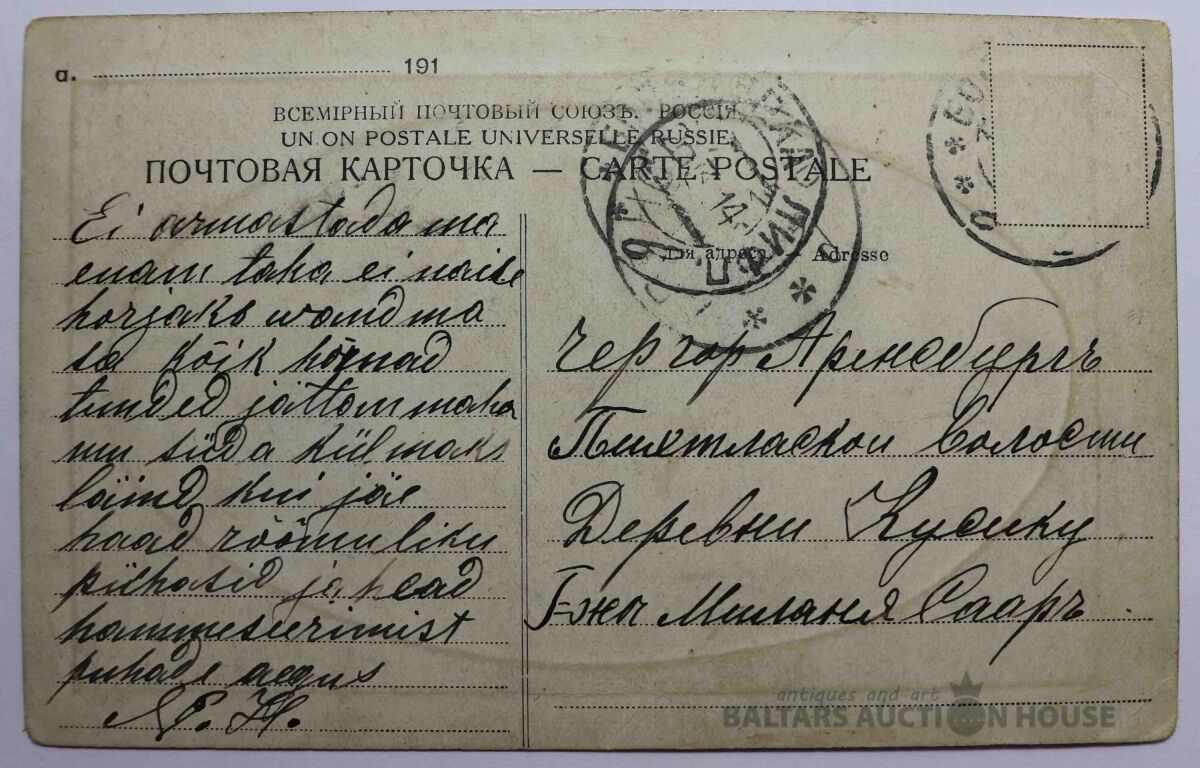 a. 191
ВСЕМІРНЫЙ ПОЧТОВЫЙ СОЮЗЪ. РОССІЯ.
UN ON POSTALE UNIVERSELLE RUSSIE.
ПОЧТОВАЯ КАРТОЧКА — CARTE POSTALE
Для адреса. — Adresse
Ei armastada ma
enam taha ei naise
horjaks woand ma
sa kõik hõrnad
tunded jättam maha
mu süda külmaks
läind kui jäe
haad rõõmuliku
pühasid ja head
hammuseerimist
puhade aegus
Чер гор Аренсбургъ
Пихтласкои волости
Деревни Кусику
Г-жа Миланя Сааръ
antiques and art
BALTARS AUCTION HOUSE